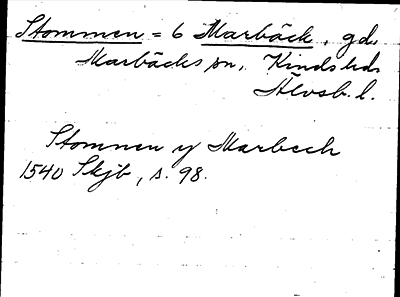 Stommen = 6 Marbäck, gd,
Marbäcks sn, Kinds hd
Älvsb. l.
Stomnen y Marbeck
1540 Skjb, s. 98.